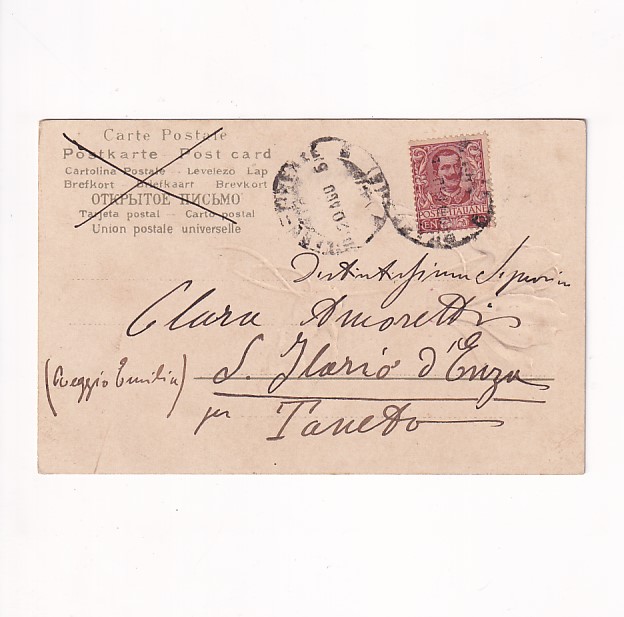 Carte Postale
Postkarte Post card
Cartolina Postale - Levelezo Lap
Brefkort - Briefkaart Brevkort
ОТКРЫТОЕ ПИСЬМО
Tarjeta postal - Carto postal
Union postale universelle
POSTE ITALIANE
Distintissima Signorina
Clara Amoretti
S. Ilario d'Enza
(Reggio Emilia)
per
Taneto